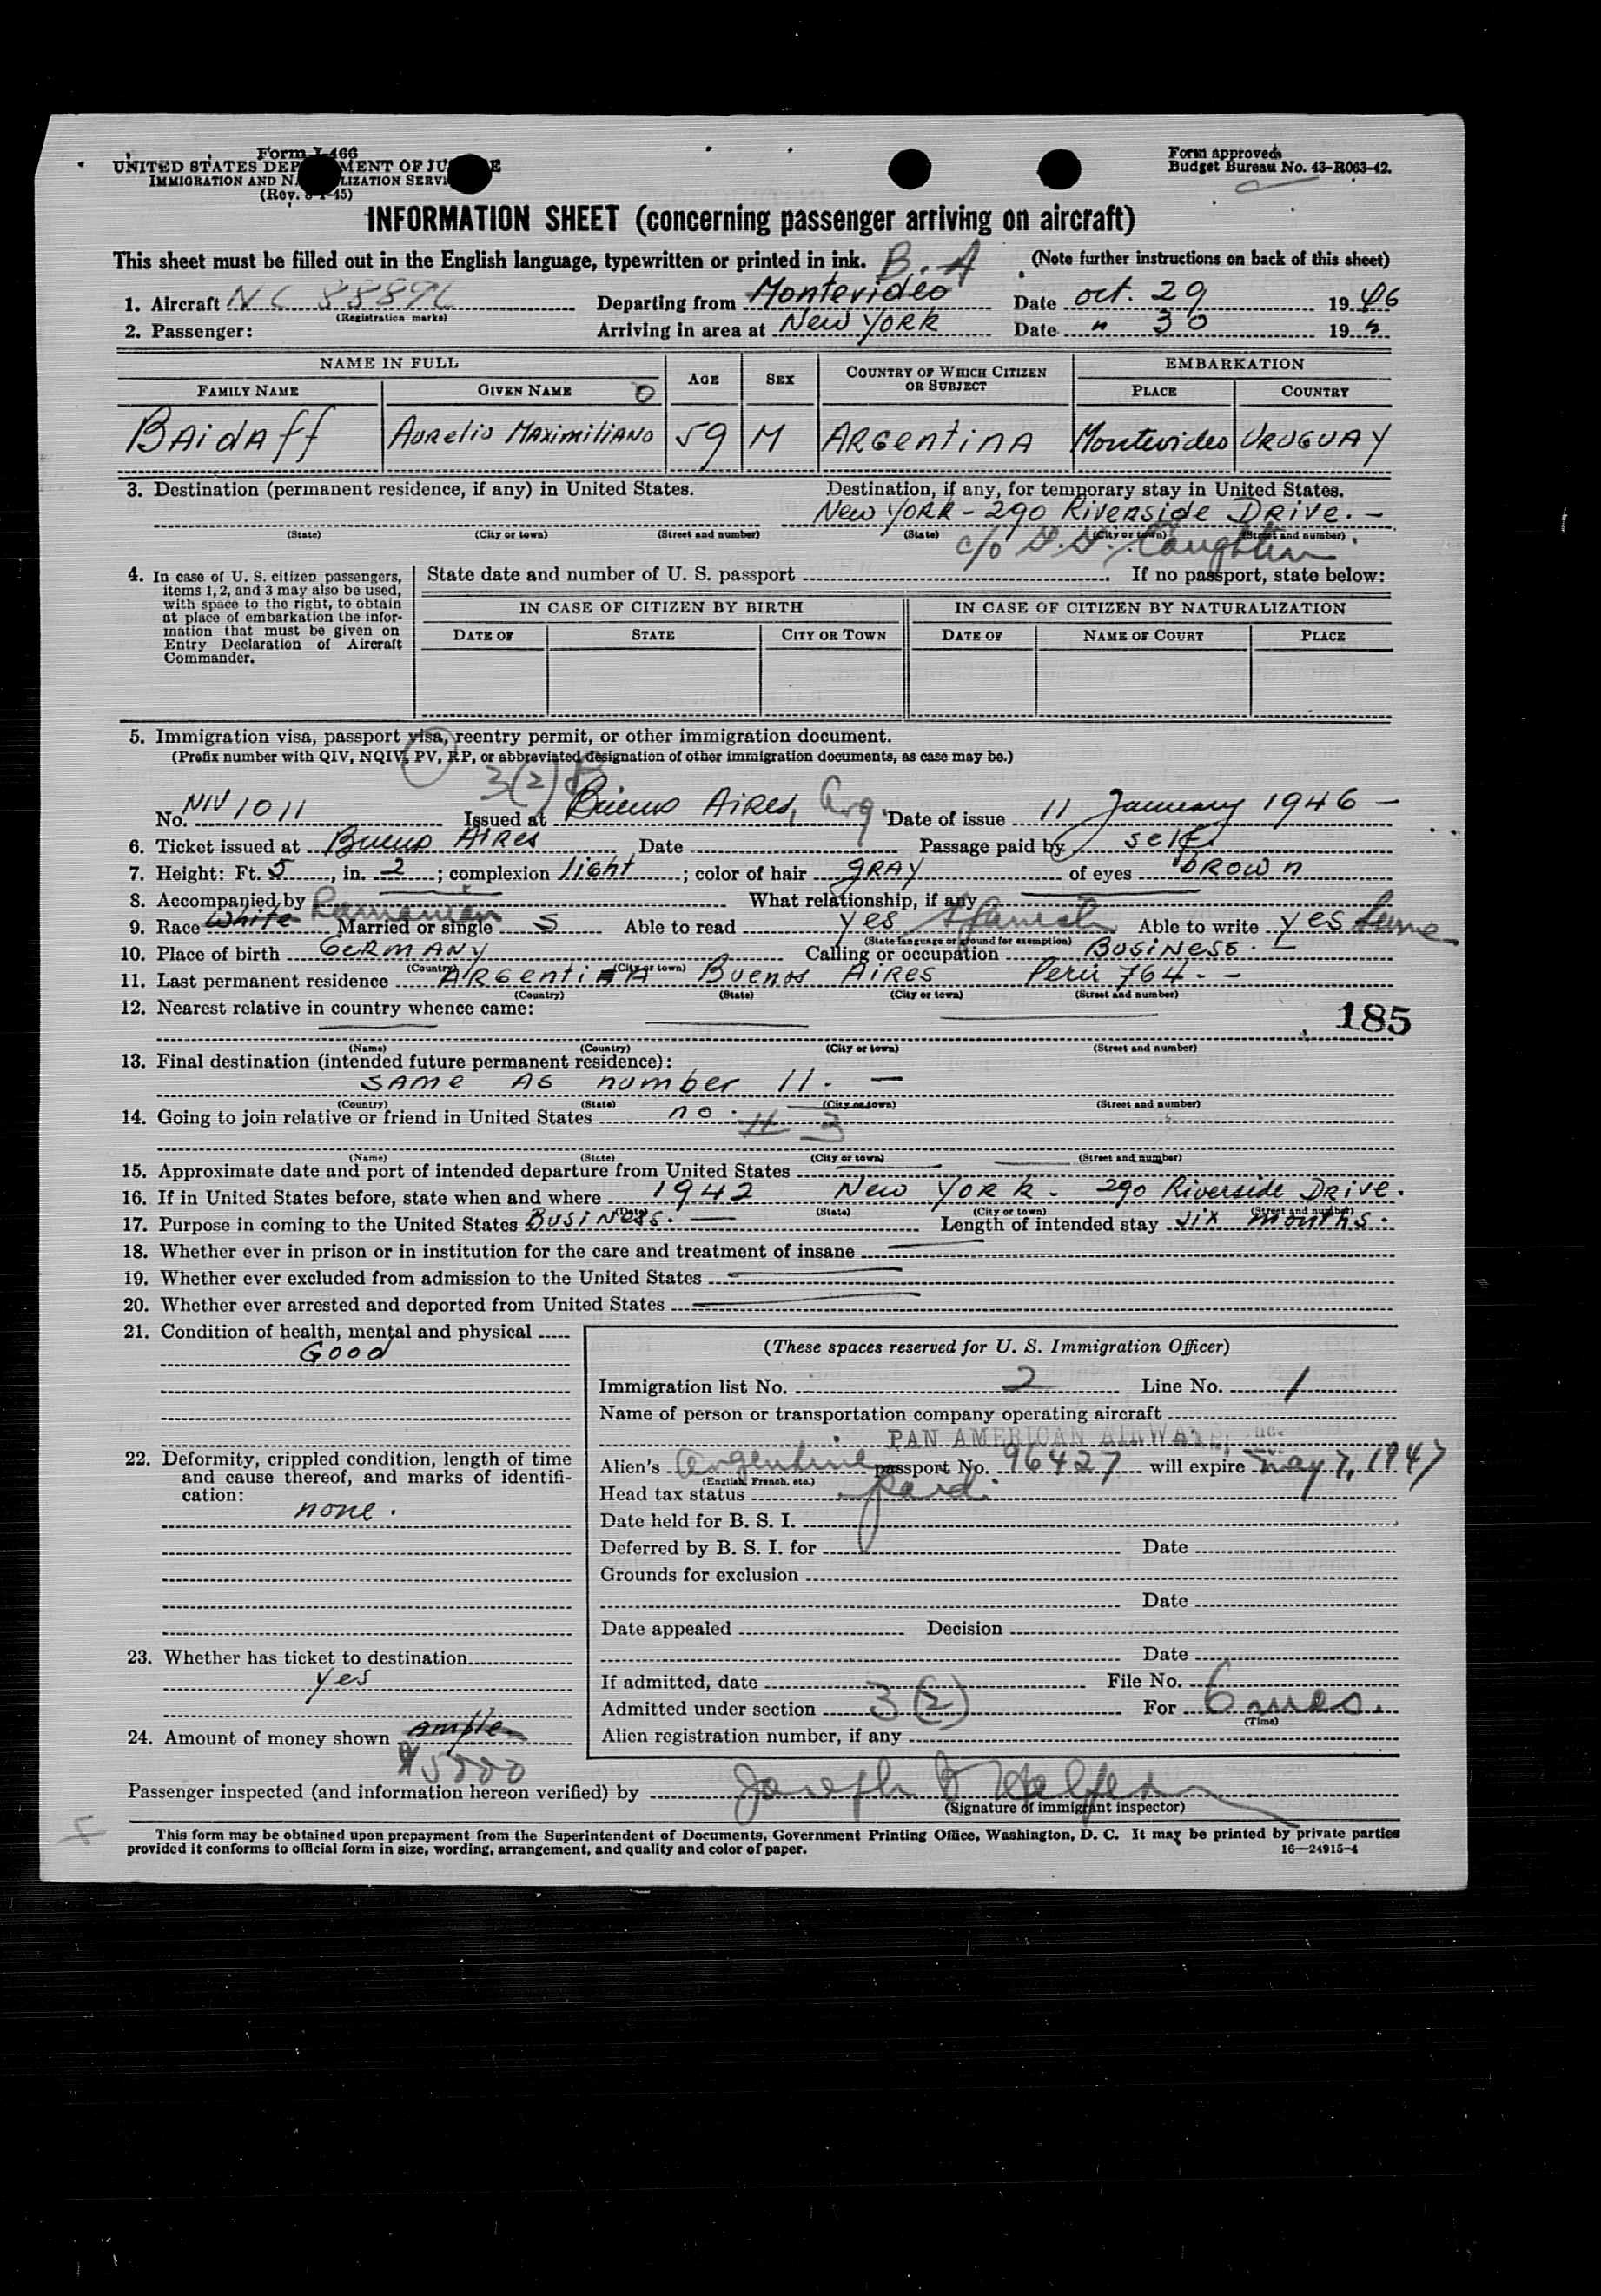 Form I-466
UNITED STATES DEPARTMENT OF JUSTICE
IMMIGRATION AND NATURALIZATION SERVICE
(Rev. 8-1-45)
Form approved
Budget Bureau No. 43-R063-42.
INFORMATION SHEET (concerning passenger arriving on aircraft)
This sheet must be filled out in the English language, typewritten or printed in ink. (Note further instructions on back of this sheet)
B. A
1. Aircraft NC (Registration marks) Departing from Montevideo Date oct. 29 1946
2. Passenger: Arriving in area at New York Date " 30 19
NAME IN FULL AGE SEX COUNTRY OF WHICH CITIZEN OR SUBJECT EMBARKATION
FAMILY NAME GIVEN NAME PLACE COUNTRY
BAidAff AURelio MAXimiliANO 59 M ARGentinA Montevideo URUGUAY
3. Destination (permanent residence, if any) in United States. Destination, if any, for temporary stay in United States.
New York - 290 Riverside Drive. -
(State) (City or town) (Street and number) (State) (City or town) (Street and number)
c/o
4. In case of U. S. citizen passengers, items 1, 2, and 3 may also be used, with space to the right, to obtain at place of embarkation the information that must be given on Entry Declaration of Aircraft Commander.
State date and number of U. S. passport If no passport, state below:
IN CASE OF CITIZEN BY BIRTH IN CASE OF CITIZEN BY NATURALIZATION
DATE OF STATE CITY OR TOWN DATE OF NAME OF COURT PLACE
5. Immigration visa, passport visa, reentry permit, or other immigration document.
(Prefix number with QIV, NQIV, PV, RP, or abbreviated designation of other immigration documents, as case may be.)
3(2)
No. NIV 1011 Issued at Buenos Aires, Arg. Date of issue 11 January 1946 -
6. Ticket issued at Buenos Aires Date Passage paid by self
7. Height: Ft. 5, in. 2; complexion light; color of hair gray of eyes brown
8. Accompanied by What relationship, if any
9. Race White Rumanian Married or single S Able to read yes Spanish Able to write yes Same
(State language or ground for exemption)
10. Place of birth GERMANY Calling or occupation Business.
(Country) (City or town)
11. Last permanent residence ARGentinA Buenos Aires Perú 764. -
(Country) (State) (City or town) (Street and number)
12. Nearest relative in country whence came:
185
(Name) (Country) (City or town) (Street and number)
13. Final destination (intended future permanent residence):
SAME AS number 11. -
(Country) (State) (City or town) (Street and number)
14. Going to join relative or friend in United States no.
(Name) (State) (City or town) (Street and number)
15. Approximate date and port of intended departure from United States
16. If in United States before, state when and where 1942 New York. 290 Riverside Drive.
(Date) (State) (City or town) (Street and number)
17. Purpose in coming to the United States Business. Length of intended stay six months.
18. Whether ever in prison or in institution for the care and treatment of insane
19. Whether ever excluded from admission to the United States
20. Whether ever arrested and deported from United States
21. Condition of health, mental and physical
Good
22. Deformity, crippled condition, length of time and cause thereof, and marks of identification:
none.
23. Whether has ticket to destination
yes
24. Amount of money shown ample
$5000
(These spaces reserved for U. S. Immigration Officer)
Immigration list No. 2 Line No. 1
Name of person or transportation company operating aircraft
PAN AMERICAN AIRWAYS, INC.
Alien's Argentine passport No. 96427 will expire May 7, 1947
(English, French, etc.)
Head tax status Paid.
Date held for B. S. I.
Deferred by B. S. I. for Date
Grounds for exclusion
Date
Date appealed Decision
Date
If admitted, date File No.
Admitted under section 3(2) For 6 mos.
(Time)
Alien registration number, if any
Passenger inspected (and information hereon verified) by Joseph
(Signature of immigrant inspector)
This form may be obtained upon prepayment from the Superintendent of Documents, Government Printing Office, Washington, D. C. It may be printed by private parties
provided it conforms to official form in size, wording, arrangement, and quality and color of paper. 16—24915-4